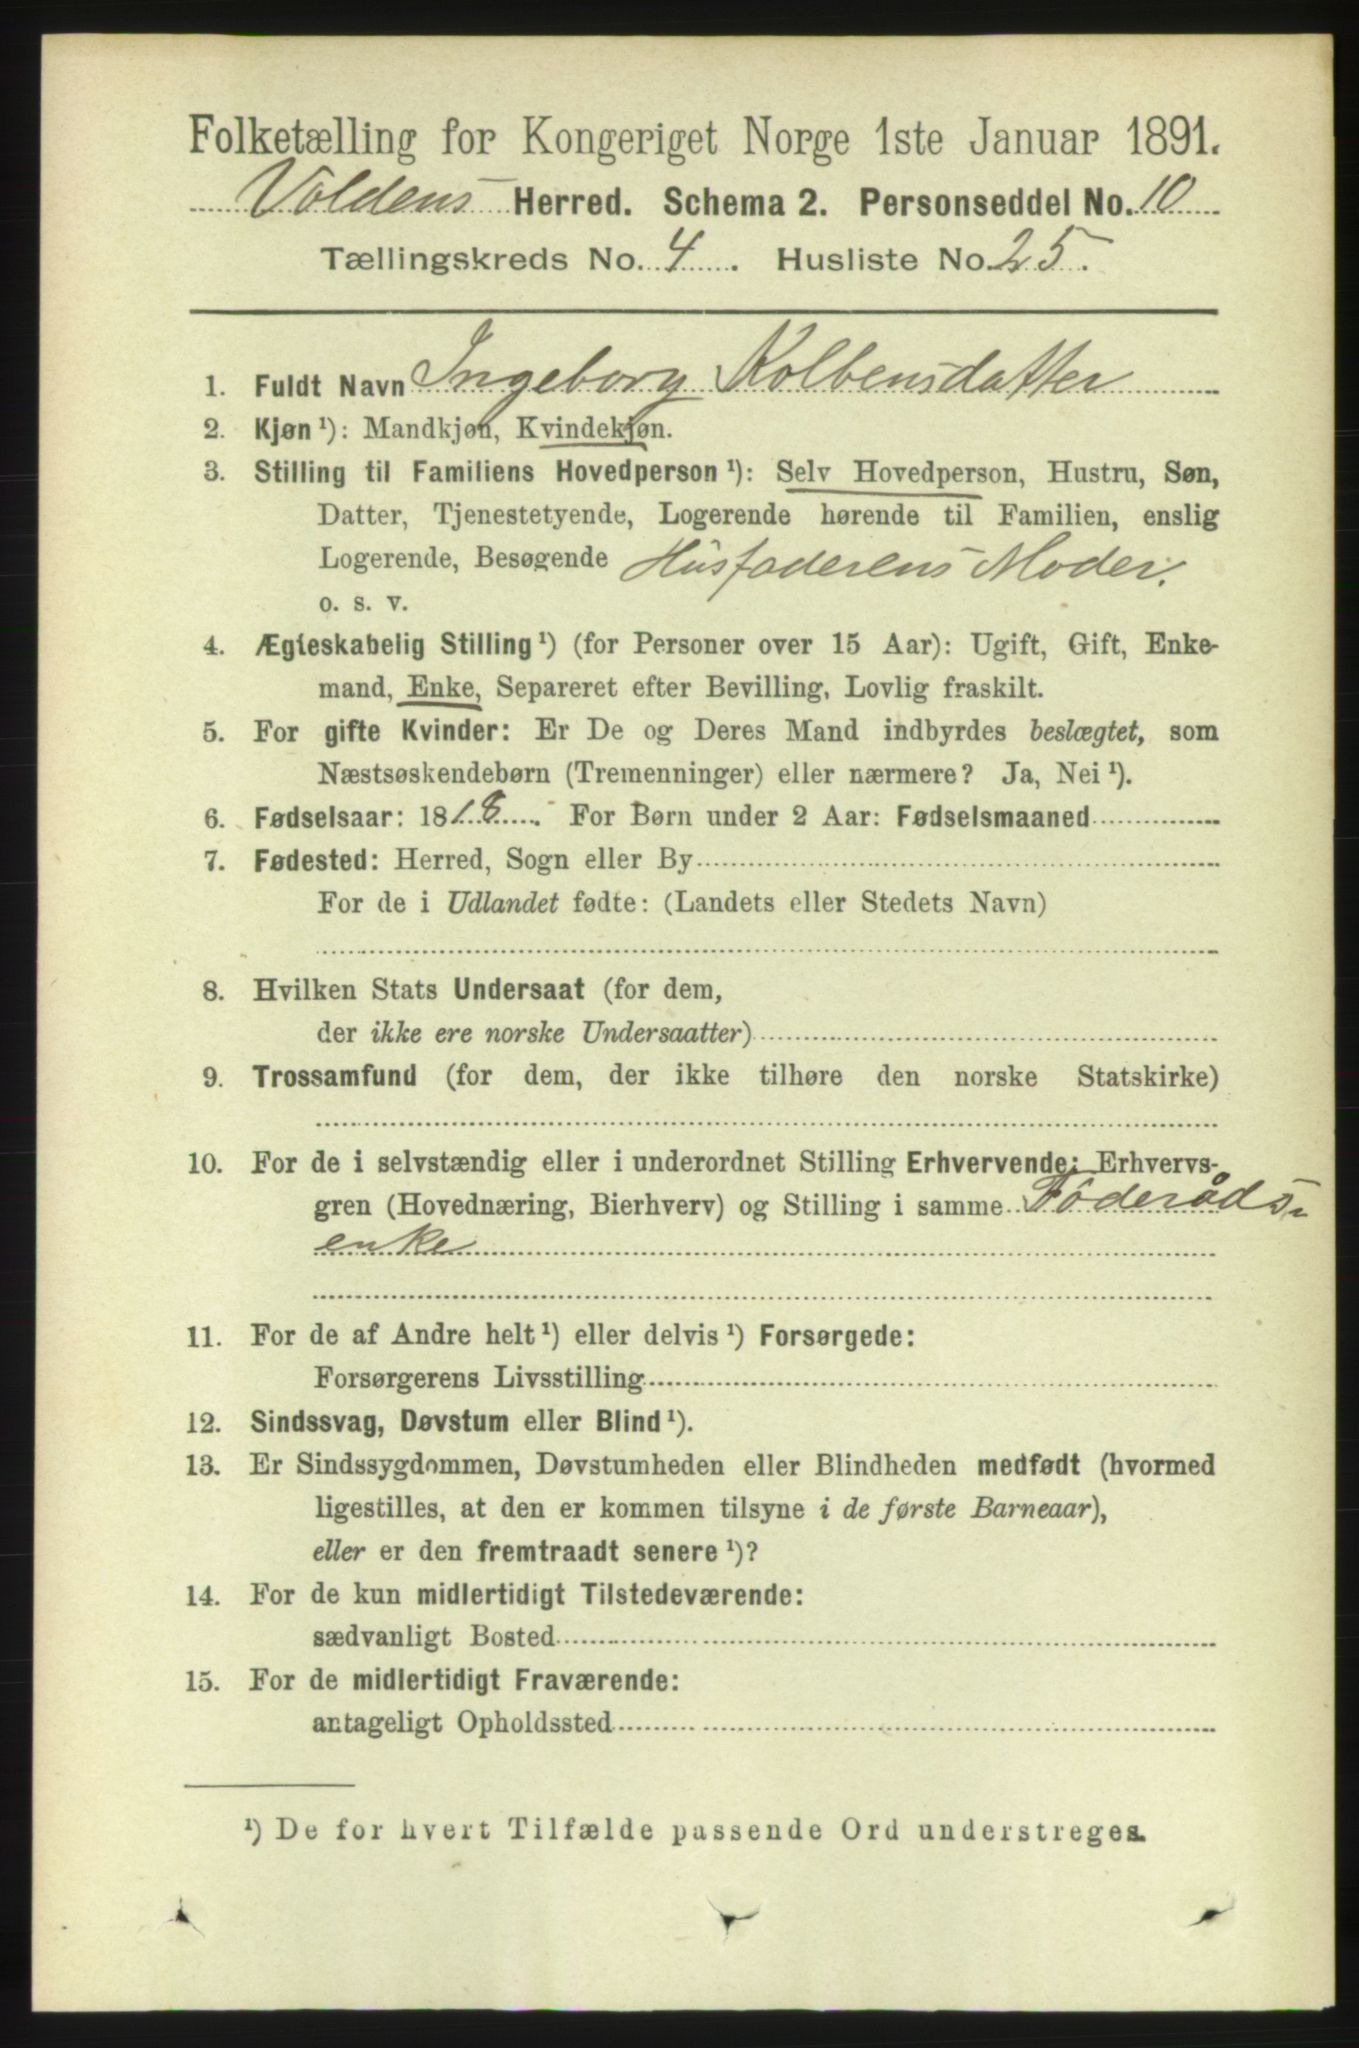 Folketælling for Kongeriget Norge 1ste Januar 1891.
Voldens Herred. Schema 2. Personseddel No. 10
Tællingskreds No. 4. Husliste No. 25.
1. Fuldt Navn Ingeborg Kolbensdatter
2. Kjøn¹): Mandkjøn, Kvindekjøn.
3. Stilling til Familiens Hovedperson¹): Selv Hovedperson, Hustru, Søn,
Datter, Tjenestetyende, Logerende hørende til Familien, enslig
Logerende, Besøgende Husfaderens Moder.
o. s. v.
4. Ægteskabelig Stilling¹) (for Personer over 15 Aar): Ugift, Gift, Enke-
mand, Enke, Separeret efter Bevilling, Lovlig fraskilt.
5. For gifte Kvinder: Er De og Deres Mand indbyrdes beslægtet, som
Næstsøskendebørn (Tremenninger) eller nærmere? Ja, Nei¹).
6. Fødselsaar: 1818. For Børn under 2 Aar: Fødselsmaaned
7. Fødested: Herred, Sogn eller By
For de i Udlandet fødte: (Landets eller Stedets Navn)
8. Hvilken Stats Undersaat (for dem,
der ikke ere norske Undersaatter)
9. Trossamfund (for dem, der ikke tilhøre den norske Statskirke)
10. For de i selvstændig eller i underordnet Stilling Erhvervende: Erhvervs-
gren (Hovednæring, Bierhverv) og Stilling i samme Föderåds-
enke
11. For de af Andre helt¹) eller delvis¹) Forsørgede:
Forsørgerens Livsstilling
12. Sindssvag, Døvstum eller Blind¹).
13. Er Sindssygdommen, Døvstumheden eller Blindheden medfødt (hvormed
ligestilles, at den er kommen tilsyne i de første Barneaar),
eller er den fremtraadt senere¹)?
14. For de kun midlertidigt Tilstedeværende:
sædvanligt Bosted
15. For de midlertidigt Fraværende:
antageligt Opholdssted
¹) De for hvert Tilfælde passende Ord understreges.